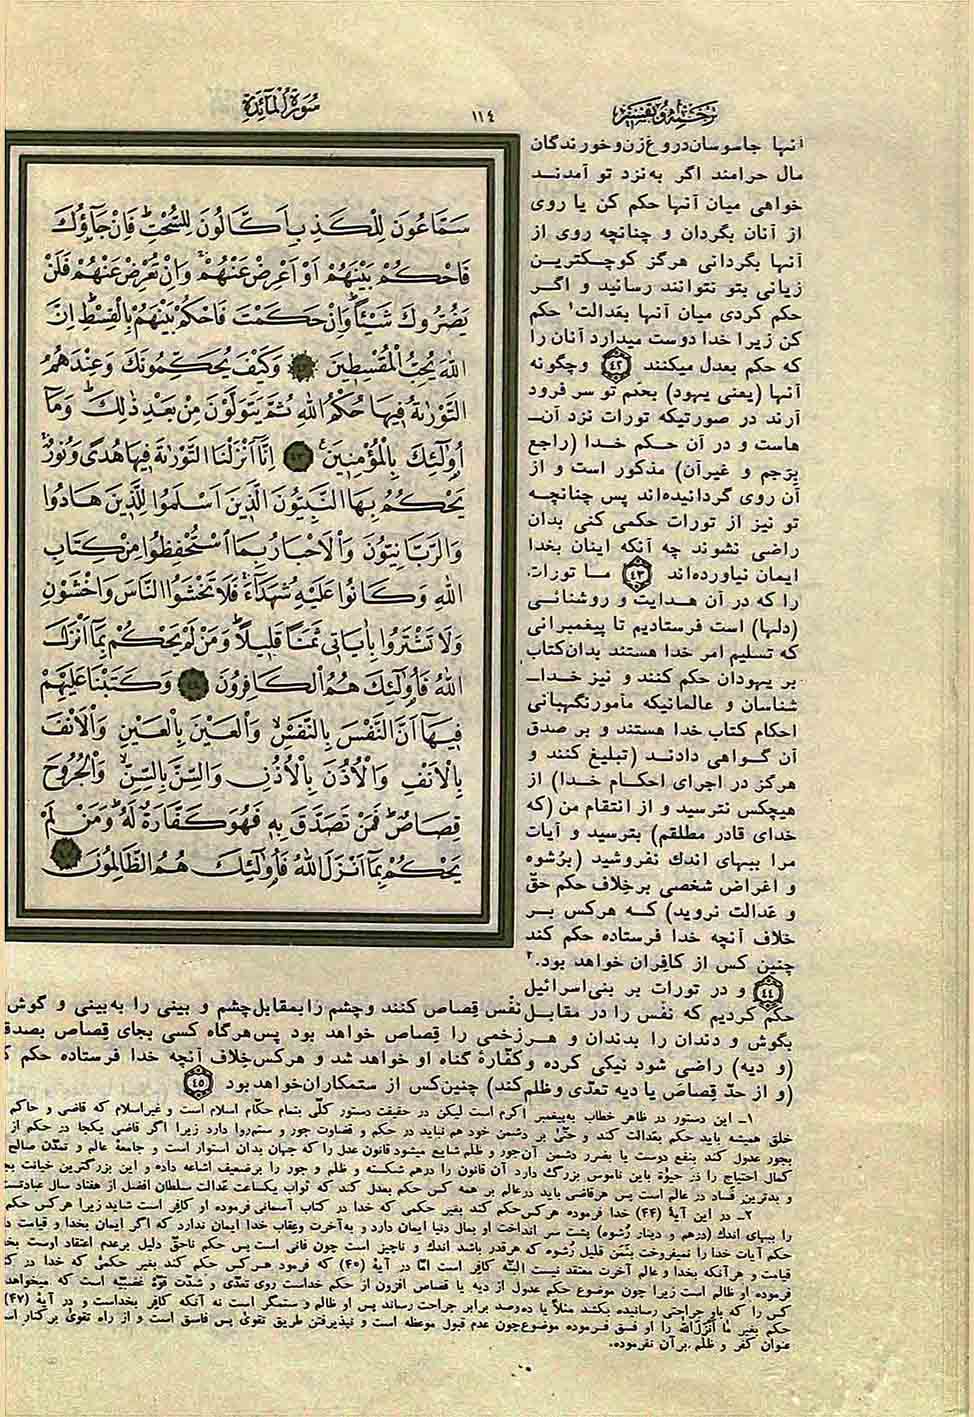 ترجمه و تفسیر
١١٤
سُورَةُ الْمَآئِدَةِ
سَمَّاعُونَ لِلْكَذِبِ اَكَّالُونَ لِلسُّحْتِ فَاِنْ جَآؤُكَ
فَاحْكُمْ بَيْنَهُمْ اَوْ اَعْرِضْ عَنْهُمْ وَاِنْ تُعْرِضْ عَنْهُمْ فَلَنْ
يَضُرُّوكَ شَيْئًا وَاِنْ حَكَمْتَ فَاحْكُمْ بَيْنَهُمْ بِالْقِسْطِ اِنَّ
اللهَ يُحِبُّ الْمُقْسِطِينَ ٤٢ وَكَيْفَ يُحَكِّمُونَكَ وَعِنْدَهُمُ
التَّوْرٰيةُ فِيهَا حُكْمُ اللهِ ثُمَّ يَتَوَلَّوْنَ مِنْ بَعْدِ ذٰلِكَ وَمَآ
اُولٰٓئِكَ بِالْمُؤْمِنِينَ ٤٣ اِنَّآ اَنْزَلْنَا التَّوْرٰيةَ فِيهَا هُدًى وَنُورٌ
يَحْكُمُ بِهَا النَّبِيُّونَ الَّذِينَ اَسْلَمُوا لِلَّذِينَ هَادُوا
وَالرَّبَّانِيُّونَ وَالْاَحْبَارُ بِمَا اسْتُحْفِظُوا مِنْ كِتَابِ
اللهِ وَكَانُوا عَلَيْهِ شُهَدَآءَ فَلَا تَخْشَوُا النَّاسَ وَاخْشَوْنِ
وَلَا تَشْتَرُوا بِاٰيَاتِي ثَمَنًا قَلِيلًا وَمَنْ لَمْ يَحْكُمْ بِمَآ اَنْزَلَ
اللهُ فَاُولٰٓئِكَ هُمُ الْكَافِرُونَ ٤٤ وَكَتَبْنَا عَلَيْهِمْ
فِيهَآ اَنَّ النَّفْسَ بِالنَّفْسِ وَالْعَيْنَ بِالْعَيْنِ وَالْاَنْفَ
بِالْاَنْفِ وَالْاُذُنَ بِالْاُذُنِ وَالسِّنَّ بِالسِّنِّ وَالْجُرُوحَ
قِصَاصٌ فَمَنْ تَصَدَّقَ بِهِ فَهُوَ كَفَّارَةٌ لَهُ وَمَنْ لَمْ
يَحْكُمْ بِمَآ اَنْزَلَ اللهُ فَاُولٰٓئِكَ هُمُ الظَّالِمُونَ ٤٥
آنها جاسوسان دروغ‌زن و خورندگان
مال حرامند اگر به‌نزد تو آمدند
خواهی میان آنها حکم کن یا روی
از آنان بگردان و چنانچه روی از
آنها بگردانی هرگز کوچکترین
زیانی بتو نتوانند رسانید و اگر
حکم کردی میان آنها بعدالت۱ حکم
کن زیرا خدا دوست میدارد آنان را
که حکم بعدل میکنند ٤٢ وچگونه
آنها (یعنی یهود) بحکم تو سر فرود
آرند در صورتیکه تورات نزد آن‌ـ
هاست و در آن حکم خدا (راجع
برَجم و غیرآن) مذکور است و از
آن روی گردانیده‌اند پس چنانچه
تو نیز از تورات حکمی کنی بدان
راضی نشوند چه آنکه اینان بخدا
ایمان نیاورده‌اند ٤٣ ما تورات
را که در آن هدایت و روشنائی
(دلها) است فرستادیم تا پیغمبرانی
که تسلیم امر خدا هستند بدان‌کتاب
بر یهودان حکم کنند و نیز خداـ
شناسان و عالمانیکه مأمورنگهبانی
احکام کتاب خدا هستند و بر صدق
آن گواهی دادند (تبلیغ کنند و
هرگز در اجرای احکام خدا) از
هیچکس نترسید و از انتقام من (که
خدای قادر مطلقم) بترسید و آیات
مرا ببهای اندك نفروشید (برُشوه
و اغراض شخصی برخلاف حکم حقّ
و عدالت نروید) که هرکس بر
خلاف آنچه خدا فرستاده حکم کند
چنین کس از کافِران خواهد بود.۲
٤٤ و در تورات بر بنی‌اسرائیل
حکم کردیم که نفْس را در مقابل نفْس قِصاص کنند وچشم رابمقابل چشم و بینی را به‌بینی و گوش
بگوش و دندان را بدندان و هر زخمی را قِصاص خواهد بود پس‌هرگاه کسی بجای قِصاص بصدقه
(و دیه) راضی شود نیکی کرده و کفّارهٔ گناه او خواهد شد و هرکس‌خِلاف آنچه خدا فرستاده حکم
(و از حدّ قِصاصَ یا دیه تعدّی و ظلم کند) چنین‌کس از ستمکاران‌خواهد بود ٤٥
۱ـ این دستور در ظاهر خطاب به‌پیغمبر اکرم است لیکن در حقیقت دستور کلّی بتمام حکّام اسلام است و غیراسلام که قاضی و حاکم
خلق همیشه باید حکم بعدالت کند و حتّی بر دشمن خود هم نباید در حکم و قضاوت جور و ستم‌روا دارد زیرا اگر قاضی یکجا در حکم از
بجور عدول کند بنفع دوست یا بضرر دشمن آن‌جور و ظلم شایع میشود قانون عدل را که جهان بدان استوار است و جامعهٔ عالم و تمدّن صالح
کمال احتیاج را در حیوٰة باین ناموس بزرگ دارد آن قانون را درهم شکسته و ظلم و جور را برضعیف اشاعه داده و این بزرگترین خیانت
و بدترین فَساد در عالم است پس هرقاضی باید درعالم بر همه کس حکم بعدل کند که ثواب یکساعت عدالت سلطان افضل از هفتاد سال عبادتست
۲ـ در این آیهٔ (٤٤) خدا فرموده هرکس‌حکم کند بغیر حکمی که خدا در کتاب آسمانی فرموده او کافِر است شاید زیرا هرکس حکم
را ببهای اندك (درهم و دینار رُشوه) پشت سر انداخت او بمال دنیا ایمان دارد و به‌آخرت وعِقاب خدا ایمان ندارد که اگر ایمان بخدا و قیامت
حکم آیات خدا را نمیفروخت بثمَن قلیل رُشوه که هرقدر باشد اندك و ناچیز است چون فانی است پس حکم ناحقّ دلیل برعدم اعتقاد اوست
قیامت و هرآنکه بخدا و عالم آخرت معتقد نیست البتّه کافِر است امّا در آیهٔ (٤٥) که فرمود هرکس حکم کند بغیر حکمی که خدا در
فرموده او ظالم است زیرا چون موضوع حکم عدول از دیه یا قصاص افزون از حکم خداست روی تعدّی و شدّت قوّهٔ غضبیّه است که میخواهد
کس را که باو جراحتی رسانیده بکشد مثلاً یا ده‌صد برابر جراحت رساند پس او ظالم و ستمگر است نه آنکه کافِر بخداست و در آیهٔ (٤٧)
حکم بغیر ما أنزَلَ‌الله را او فسق فرموده موضوع‌چون عدم قبول موعظه است و نپذیرفتن طریق تقویٰ پس فاسق است و از راه تقویٰ برکنار
عنوان کفر و ظلم برآن نفرموده.